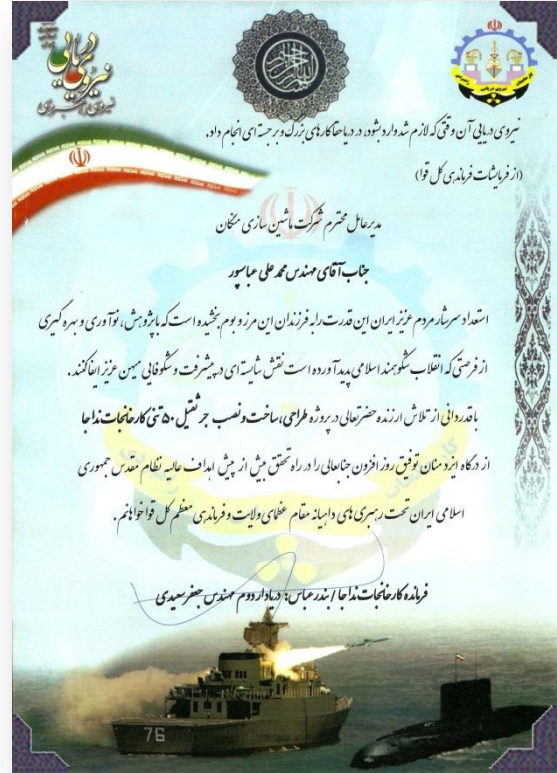 نیروی دریایی
نیروی دریایی آن وقتی که لازم شد وارد بشود، در دریاها کارهای بزرگ و برجسته ای انجام داد.
(از فرمایشات فرماندهی کل قوا)
مدیرعامل محترم شرکت ماشین سازی مکان
جناب آقای مهندس محمد علی عباسپور
استعداد سرشار مردم عزیز ایران این قدرت را به فرزندان این مرز و بوم بخشیده است که با پژوهش، نوآوری و بهره گیری
از فرصتی که انقلاب شکوهمند اسلامی پدید آورده است نقش شایسته ای در پیشرفت و شکوفایی میهن عزیز ایفا کنند.
با قدردانی از تلاش ارزنده حضرتعالی در پروژه طراحی، ساخت و نصب جرثقیل ۵۰ تنی کارخانجات نداجا
از درگاه ایزد منان توفیق روز افزون جنابعالی را در راه تحقق بیش از پیش اهداف عالیه نظام مقدس جمهوری
اسلامی ایران تحت رهبری های داهیانه مقام عظمای ولایت و فرماندهی معظم کل قوا خواهانم.
فرمانده کارخانجات نداجا / بندرعباس: دریادار دوم مهندس جعفر سعیدی
76